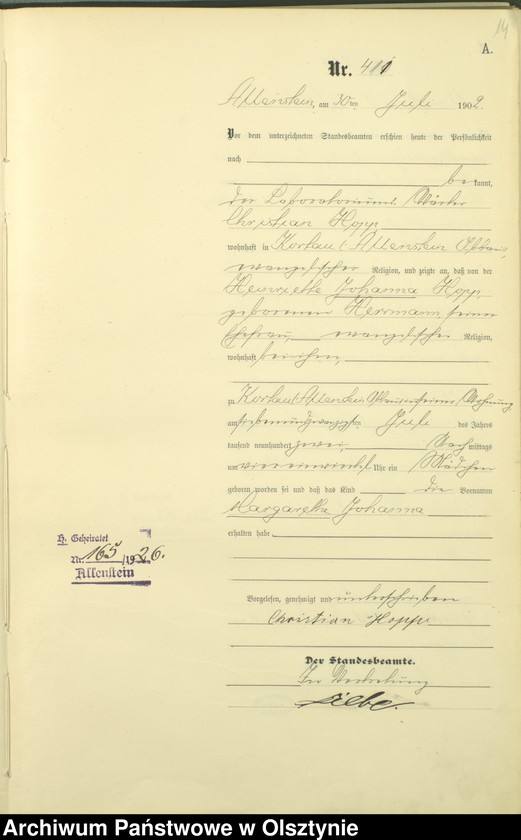 14
A.
Nr. 411
Allenstein, am 30ten Juli 1902.
Vor dem unterzeichneten Standesbeamten erschien heute der Persönlichkeit
nach
bekannt,
der Laboratoriums Wärter
Christian Hopp
wohnhaft in Kortau/Allenstein
evangelischer Religion, und zeigte an, daß von der
Henriette Johanna Hopp,
geborenen Herrmann, seiner
Ehefrau, evangelischer Religion,
wohnhaft bei ihm,
zu Kortau/Allenstein in seiner Wohnung
am siebenundzwanzigsten Juli des Jahres
tausend neunhundert zwei, Nachmittags
um vier einviertel Uhr ein Mädchen
geboren worden sei und daß das Kind die Vornamen
Margarethe Johanna
erhalten habe.
H. Geheiratet
Nr. 165/1926.
Allenstein
Vorgelesen, genehmigt und unterschrieben
Christian Hopp
Der Standesbeamte.
In Vertretung
Archiwum Państwowe w Olsztynie